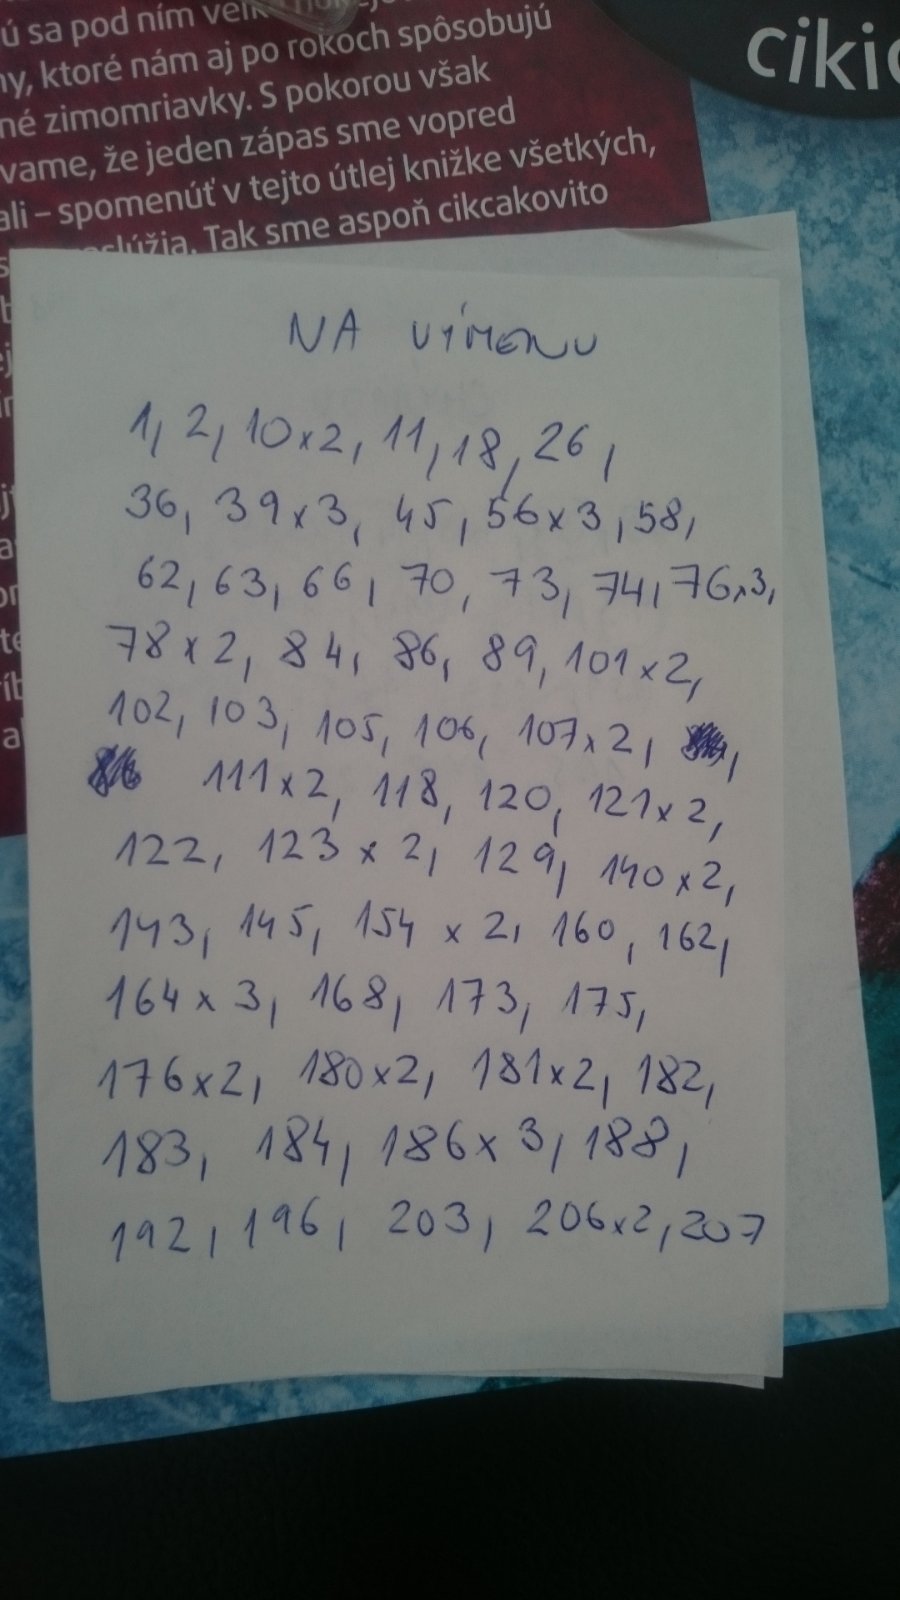 ú sa pod ním
ny, ktoré nám aj po rokoch spôsobujú
né zimomriavky. S pokorou však
vame, že jeden zápas sme vopred
ali – spomenúť v tejto útlej knižke všetkých,
slúžia. Tak sme aspoň cikcakovito
NA VÍMENU
1, 2, 10x2, 11, 18, 26,
36, 39x3, 45, 56x3, 58,
62, 63, 66, 70, 73, 74, 76x3,
78x2, 84, 86, 89, 101x2,
102, 103, 105, 106, 107x2,
111x2, 118, 120, 121x2,
122, 123x2, 129, 140x2,
143, 145, 154x2, 160, 162,
164x3, 168, 173, 175,
176x2, 180x2, 181x2, 182,
183, 184, 186x3, 188,
192, 196, 203, 206x2, 207